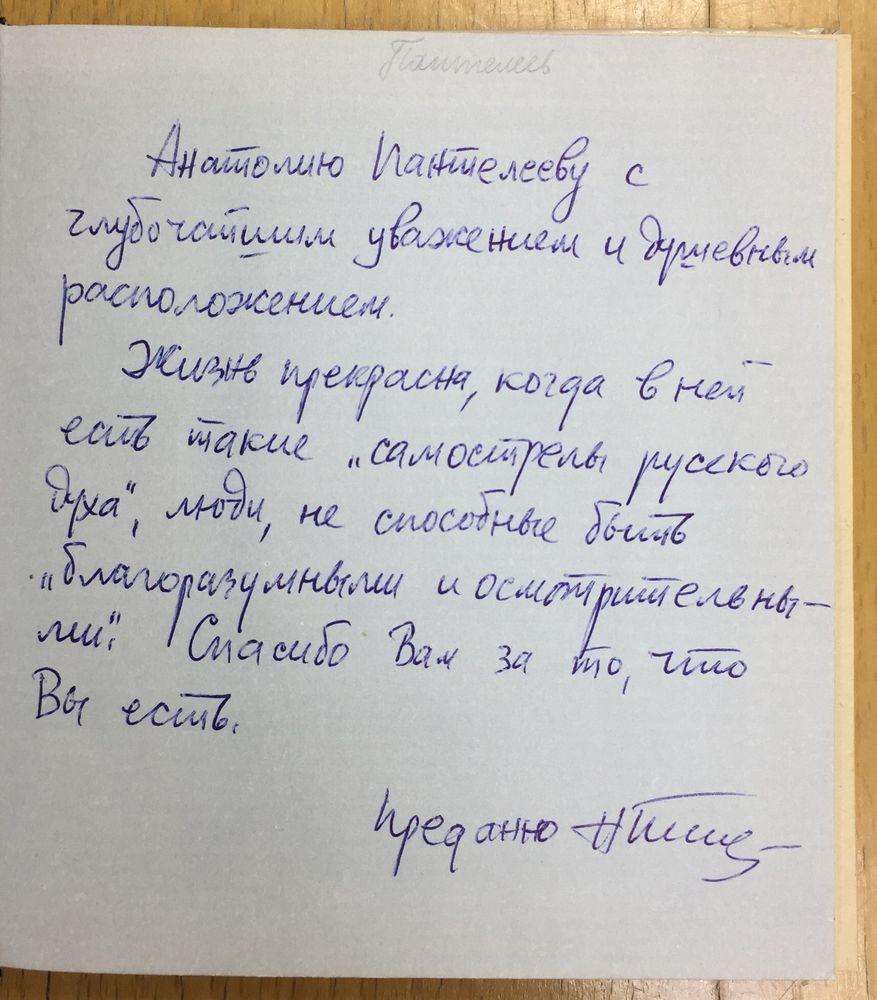 Пантелеев
Анатолию Пантелееву с
глубочайшим уважением и душевным
расположением.
Жизнь прекрасна, когда в ней
есть такие „самострелы русского
духа", люди, не способные быть
„благоразумными и осмотрительны-
ми". Спасибо Вам за то, что
Вы есть.
Преданно